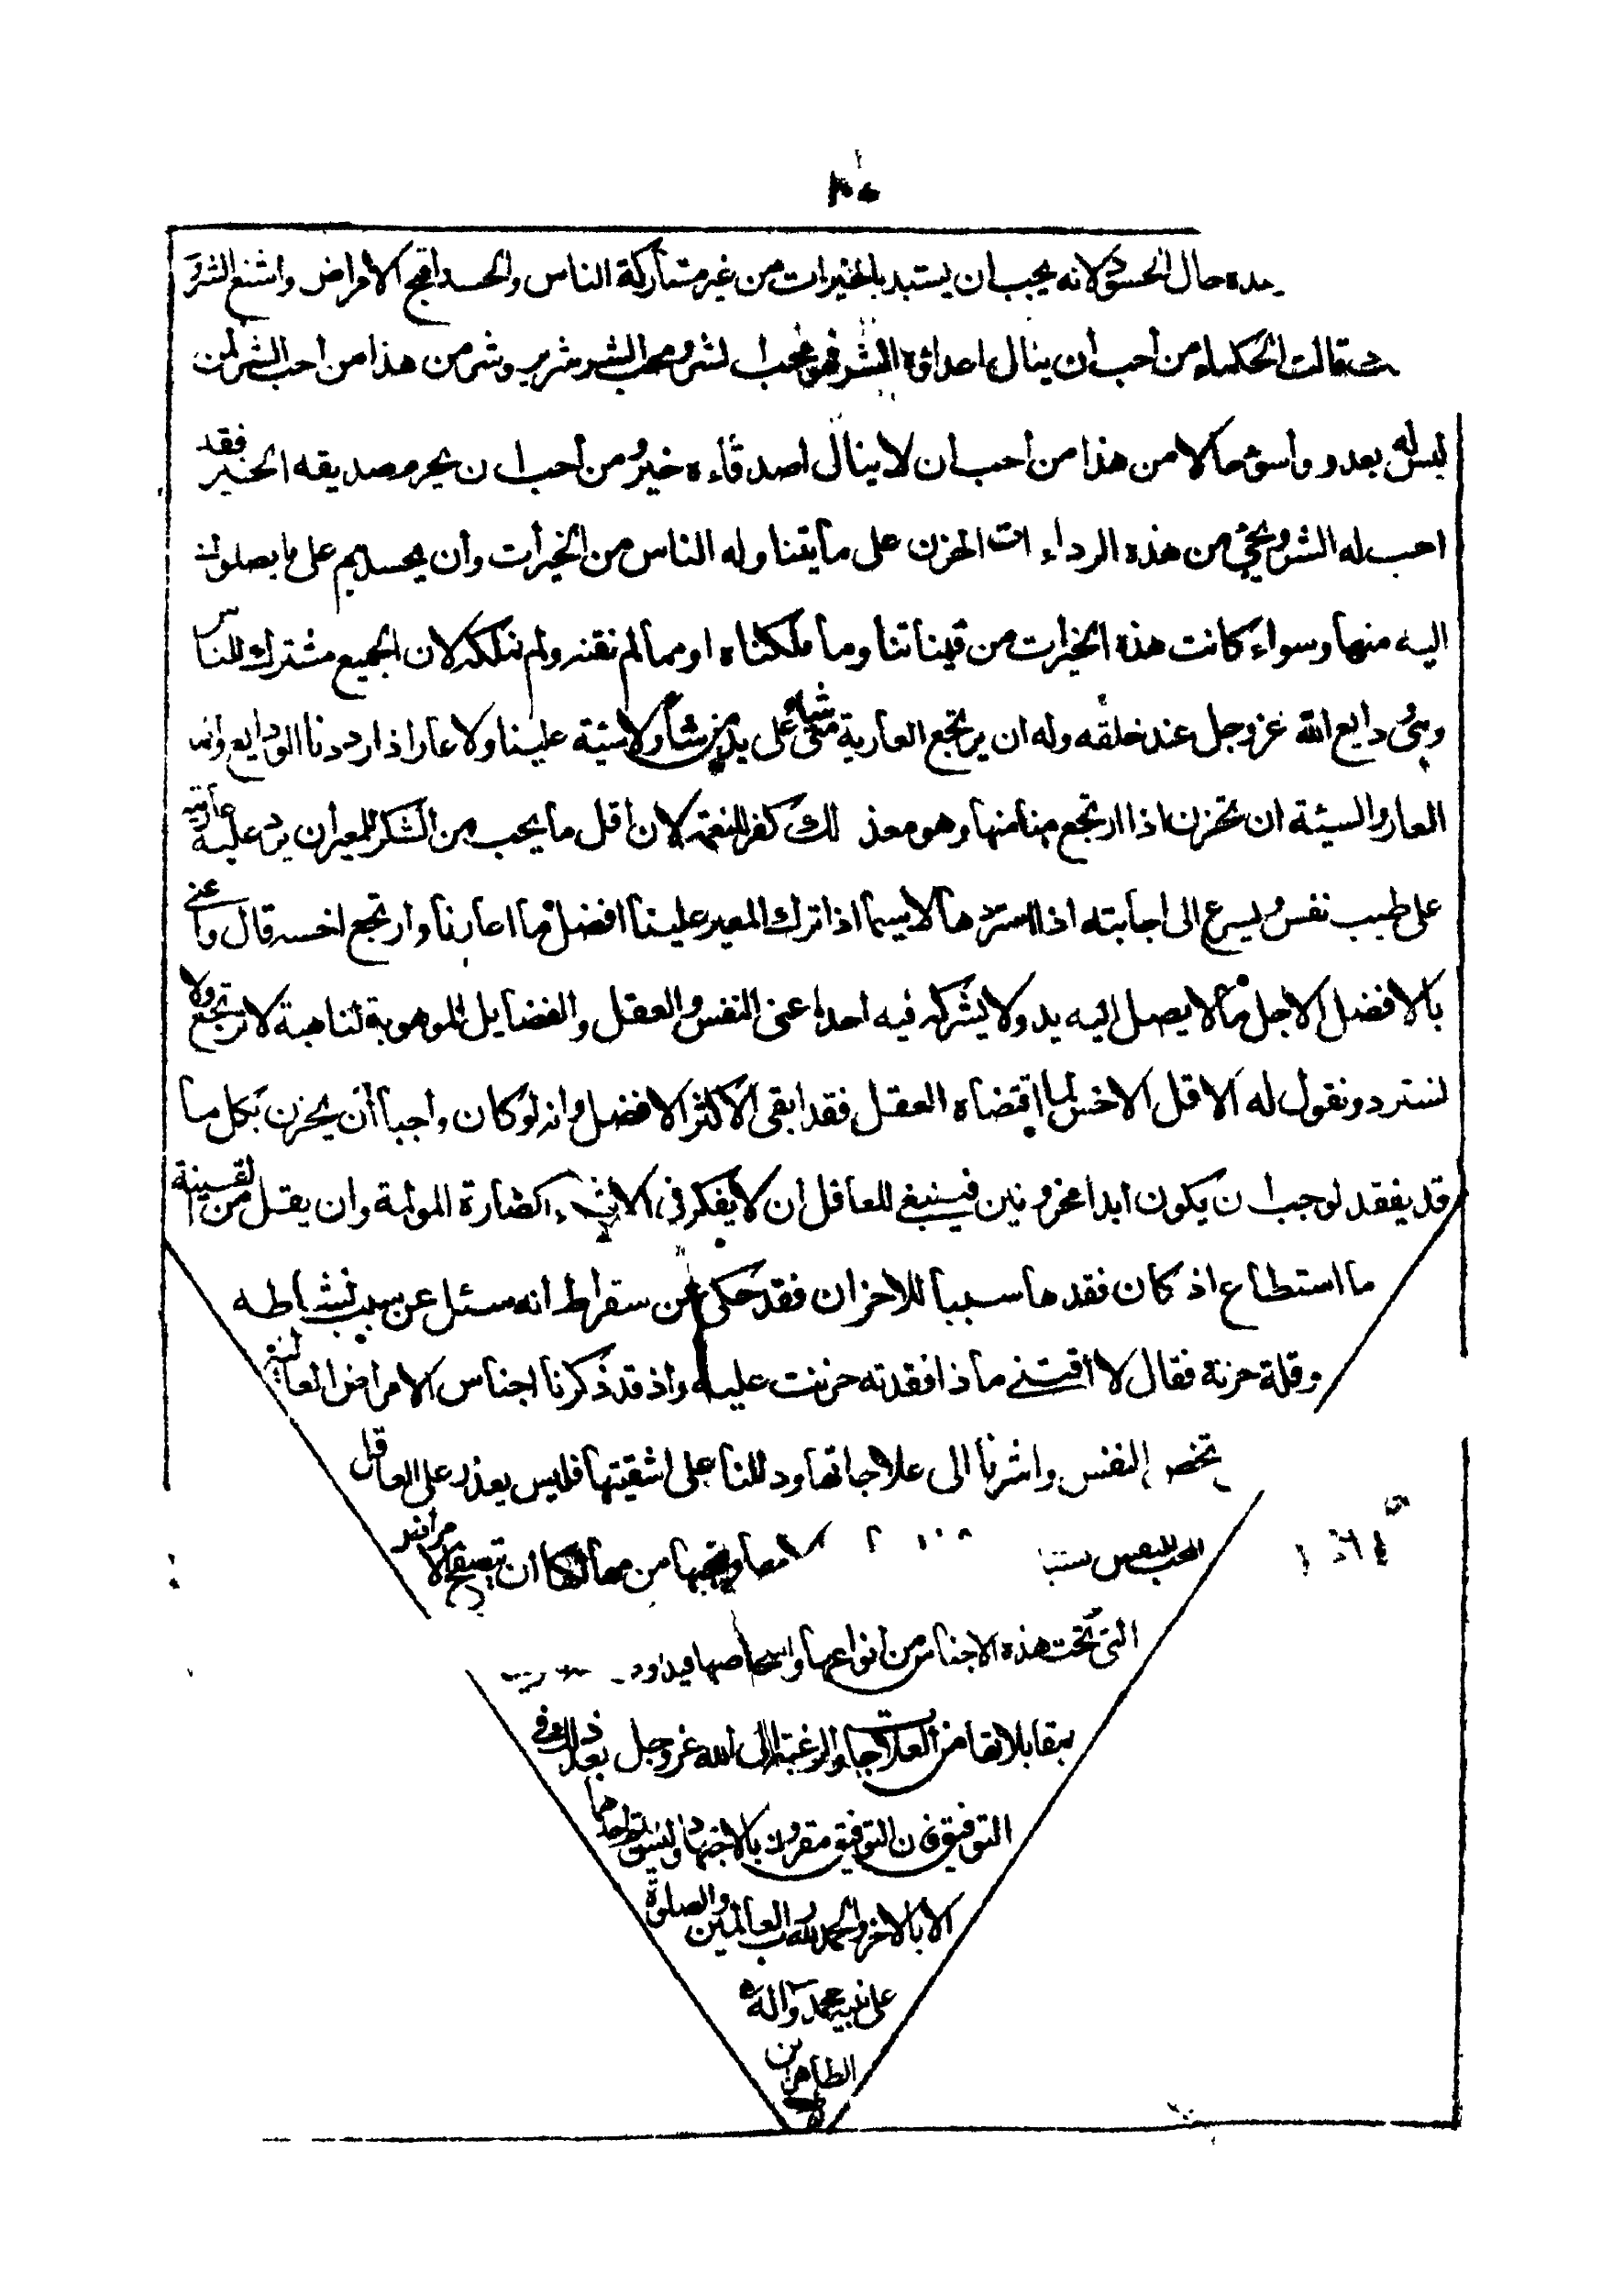 هذه حال الحسود لانه يجب ان يستبد بالخيرات من غير مشاركة الناس والحسد اقبح الامراض واشنع الشرور
قالت الحكماء من أحب أن ينال اعداؤه الشر فهو محب الشر ومحب الشر شرير وشر من هذا من احب الشر لمن
ليس له بعدو وأسوء حالا من هذا من أحب ان لا ينال اصدقاءه خير ومن أحب ان يحرم صديقه الخير فقد
احب له الشر ويجئ من هذه الرداءات الحزن على ما يتناوله الناس من الخيرات وأن يحسدهم على ما يصلون
اليه منها وسواء كانت هذه الخيرات من قيناتنا وما ملكناه او مما لم نقتنه ولم نملكه لان الجميع مشترك للناس
وهي ودايع الله عز وجل عند خلقه وله ان يرتجع العارية متى شاء على يد من شاء ولا سيئة علينا ولا عار اذا رددنا الودايع وانما
العار والسيئة ان نحزن اذا ارتجع منا منها وهو مع ذلك كفر للنعمة لان اقل ما يجب من الشكر للمعير ان يرد عليه عاريته
على طيب نفس ويسرع الى اجابته اذا استردها لا سيما اذا ترك المعير علينا افضل ما اعارنا وارتجع اخسه قال وأعني
بالافضل الاجل ما لا يصل اليه يد ولا يشركه فيه احد اعنى النفس والعقل والفضايل الموهوبة لنا هبة لا ترتجع ولا
تسترد ونقول له الاقل الاخس لما اقتضاه العقل فقد ابقى الاكثر الافضل وانه لو كان واجبا أن يحزن بكل ما
قد يفقد لوجب ان يكون ابدا محزونين فينبغي للعاقل ان لا يفكر في الاشياء الضارة المولمة وان يقل من القينة
ما استطاع اذ كان فقدها سببا للاحزان فقد حكى عن سقراط انه سئل عن سبب نشاطه
وقلة حزنه فقال لا أقتني ما اذا فقدته حزنت عليه واذ قد ذكرنا اجناس الامراض الغالبة
تخص النفس واشرنا الى علاجاتها ودللنا على اشفيتها فليس بعذر على العاقل
المحب لنفسه ان يتصفح الامراض
التي تحت هذه الاجناس من أنواعها واشخاصها فيداوى
بمقابلاتها من العلاجات والرغبة الى الله عز وجل بعد ذلك في
التوفيق فان التوفيق مقرون بالاجتهاد وليس يتم احدهما
الا بالاخر والحمد لله رب العالمين والصلوة
على نبيه محمد وآله
الطاهرين